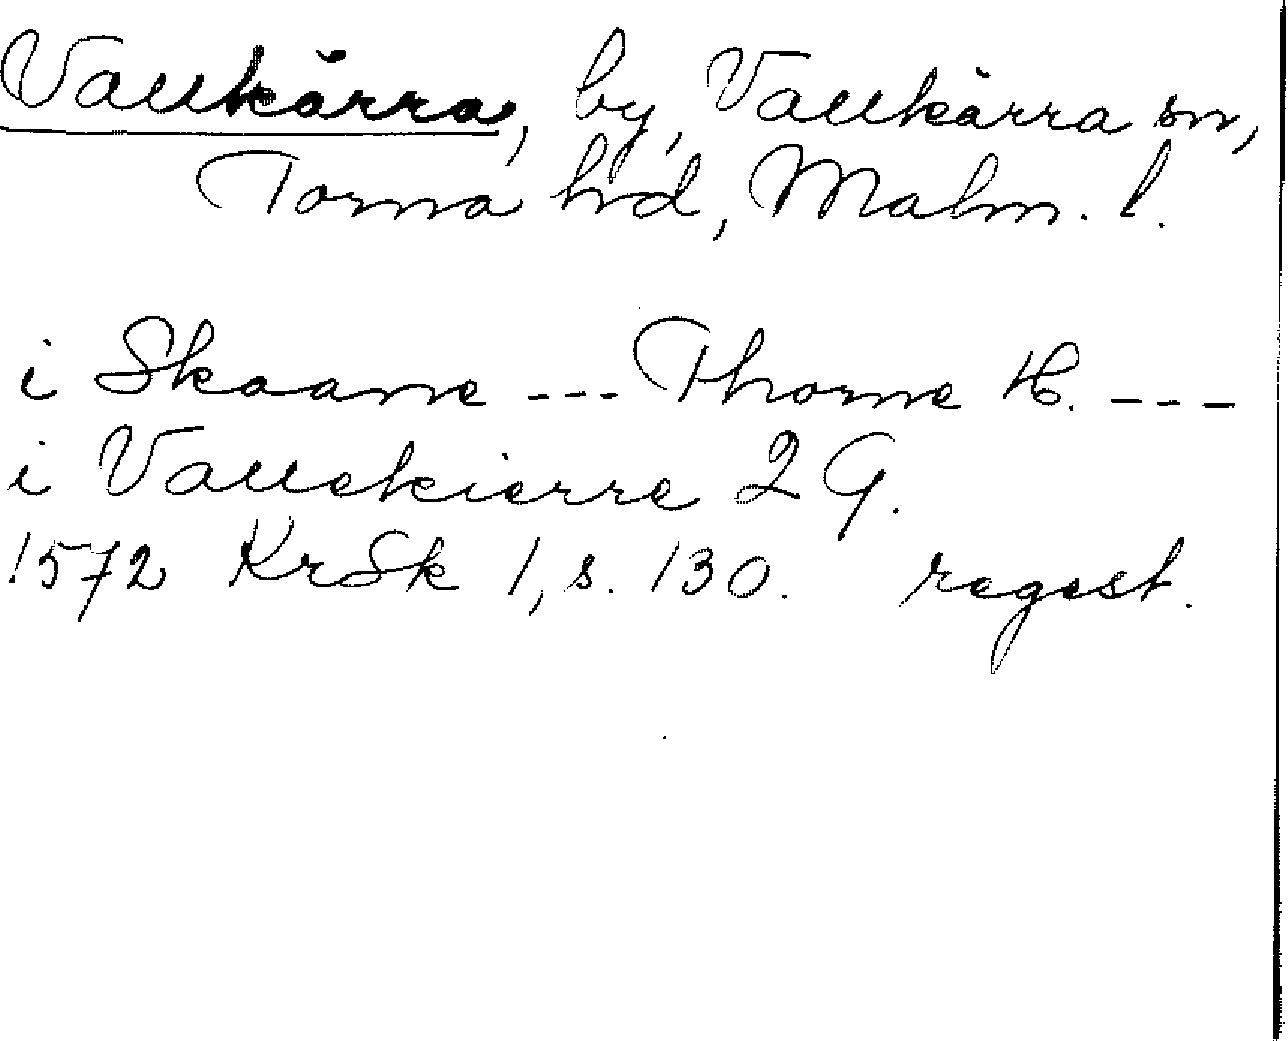 Vallkärra, by, Vallkärra sn,
Torna hd, Malm. l.
i Skaane --- Thorne H. ---
i Vallekierre 2 G.
1572 KrSk 1, s. 130. regest.